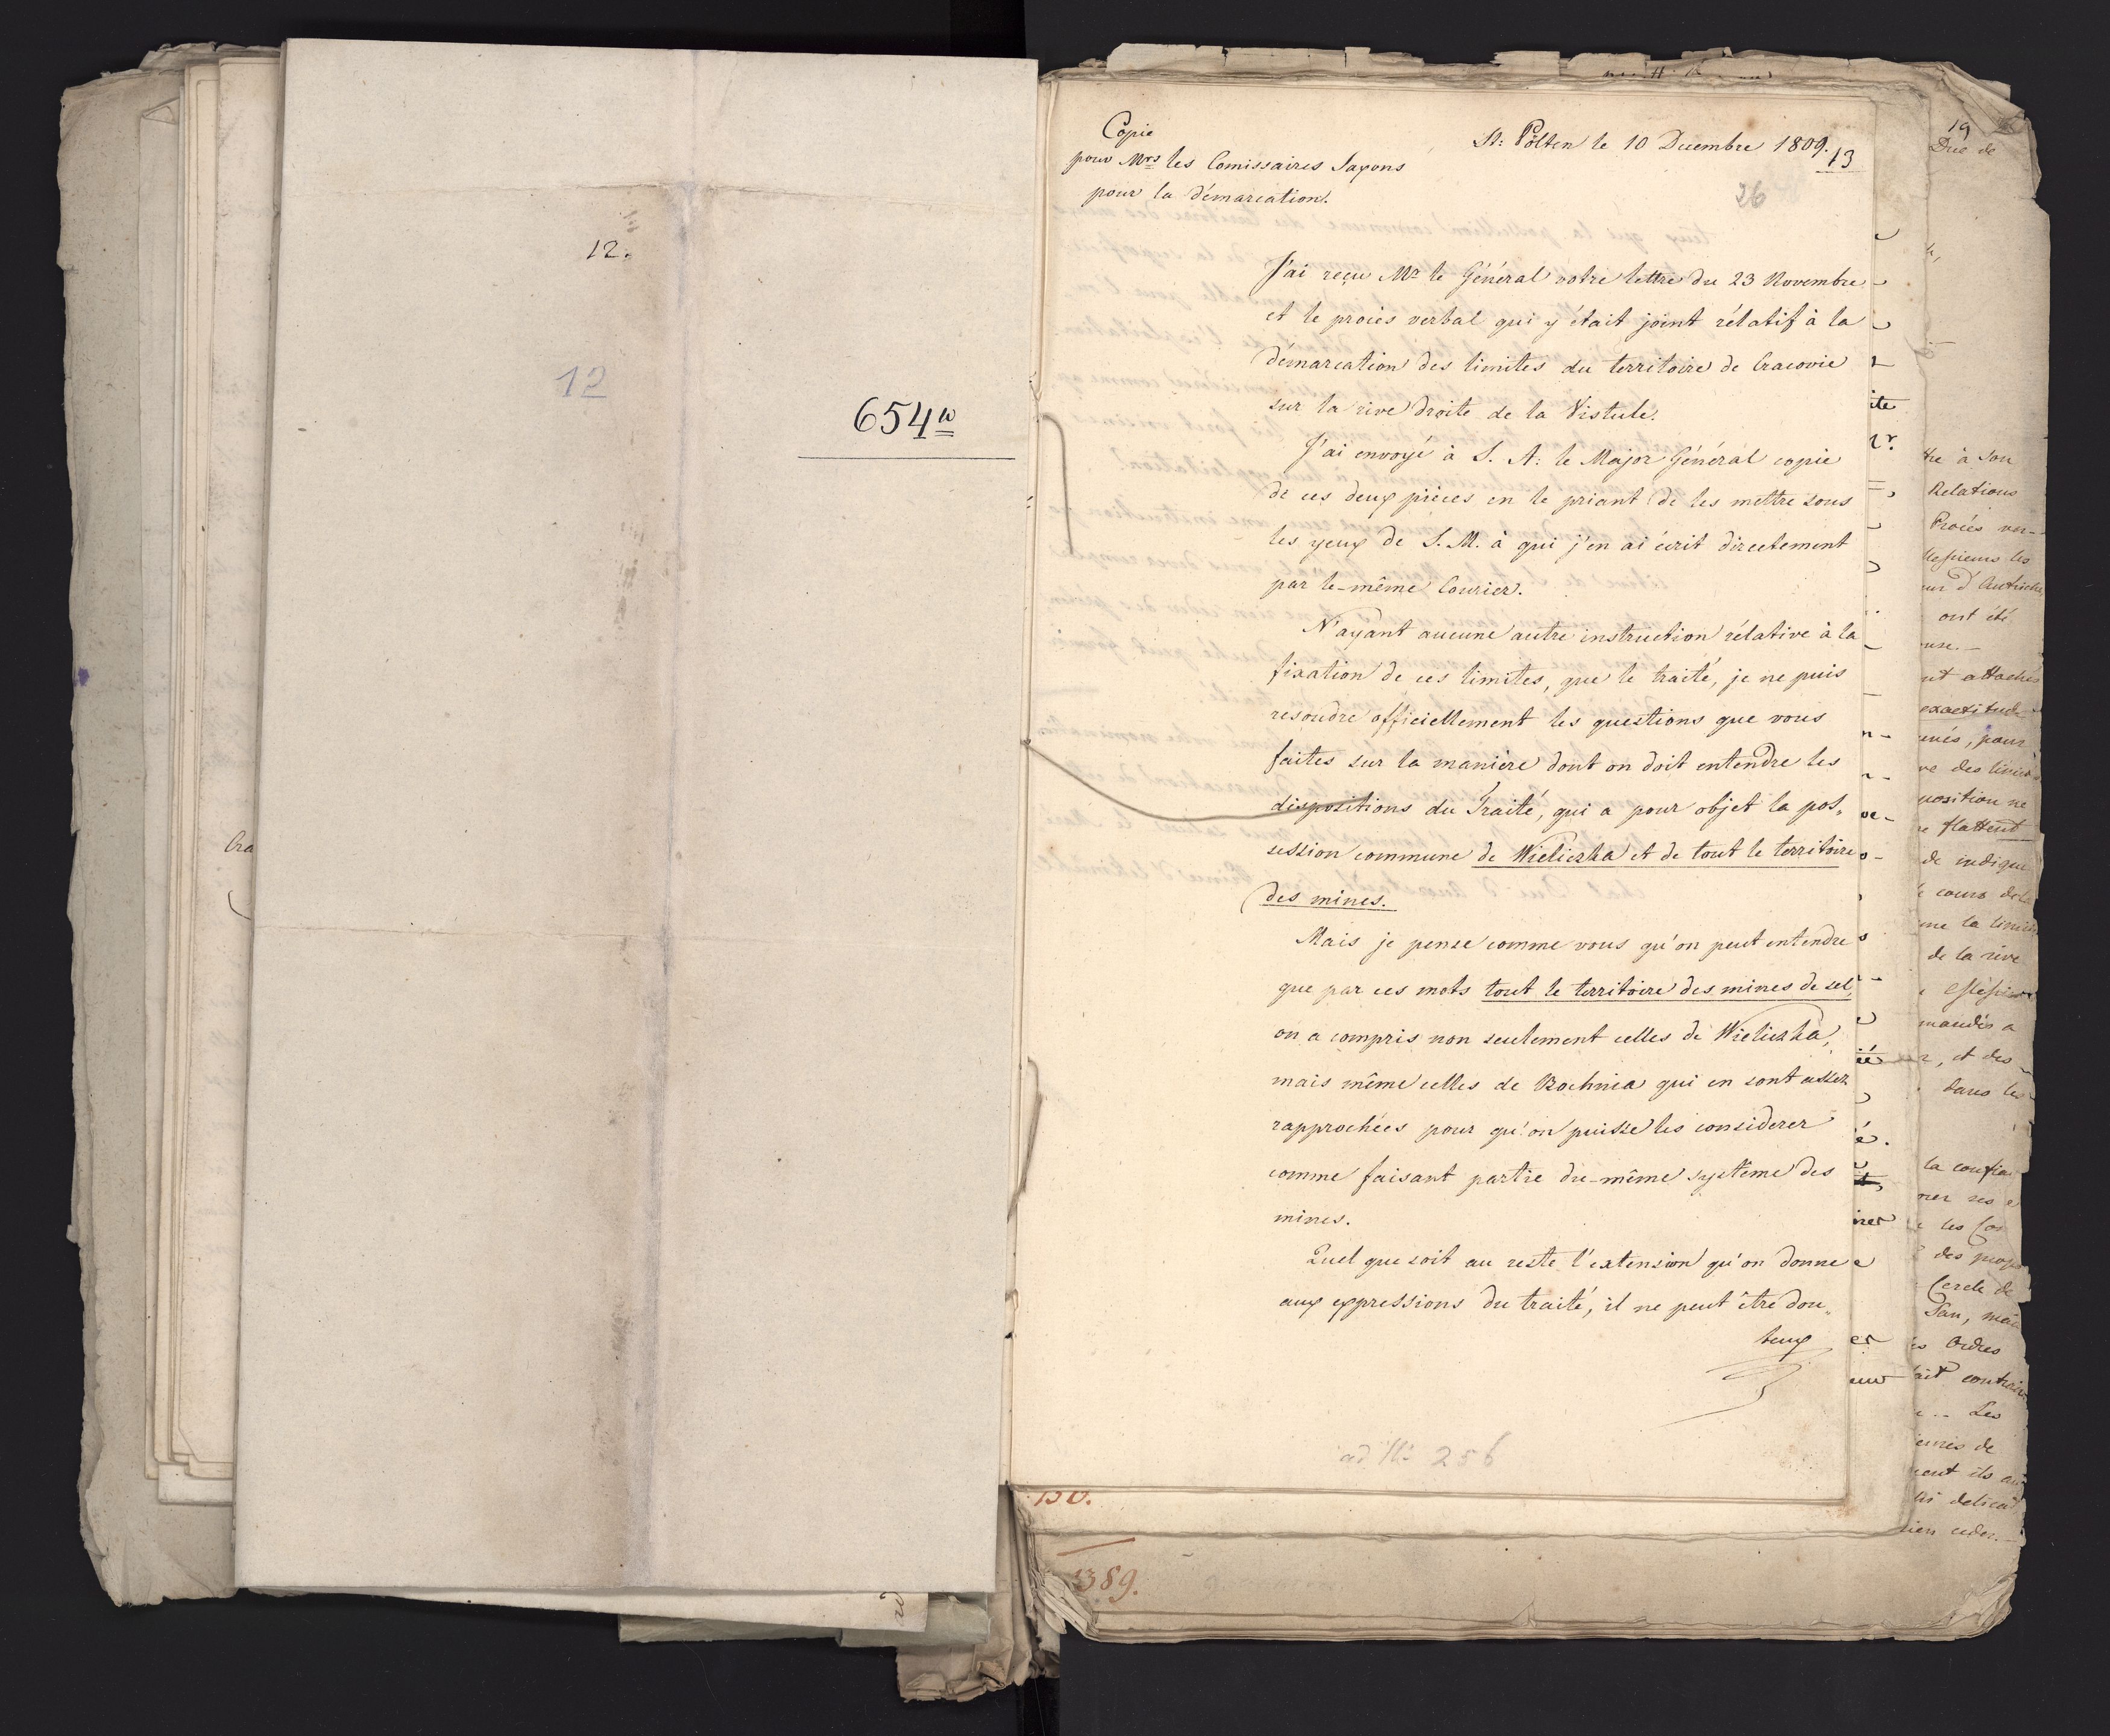 12.
12
654 a
Cra
Copie
pour Mrs les Comissaires Saxons
pour la démarcation.
St: Pölten le 10 Decembre 1809.
13
26
J'ai reçu Mr le Général votre lettre du 23 Novembre
et le procès verbal qui y était joint rélatif à la
démarcation des limites du territoire de Cracovie
sur la rive droite de la Vistule.
J'ai envoyé à S. A: le Major Général copie
de ces deux pièces en le priant de les mettre sous
les yeux de S. M. à qui j'en ai écrit directement
par le-même Courier.
N'ayant aucune autre instruction rélative à la
fixation de ces limites, que le traité, je ne puis
resoudre officiellement les questions que vous
faites sur la manière dont on doit entendre les
dispositions du Traité, qui a pour objet la pos„
session commune de Wieliczka et de tout le territoire
des mines.
Mais je pense comme vous qu'on peut entendre
que par ces mots tout le territoire des mines de sel,
on a compris non seulement celles de Wieliczka,
mais même celles de Bochnia qui en sont assez
rapprochées pour qu'on puisse les considerer
comme faisant partie du-même système des
mines.
Quel que soit au reste l'extension qu'on donne
aux expressions du traité, il ne peut être dou„
teux
ad No 256
130.
389.
19
Duc de
tre à Son
Relations
Procès ver-
d'Autriche
ont été
use.-
nt attachés
exactitude
, pour
position ne
flattent
de indique
cours de la
de la rive
mandés a
, et des
dans les
la confia
ner ses
les Cos
Cercle de
San, mais
Ordres
ait contraire
Les
ent ils au
delicat
rien ceder.-